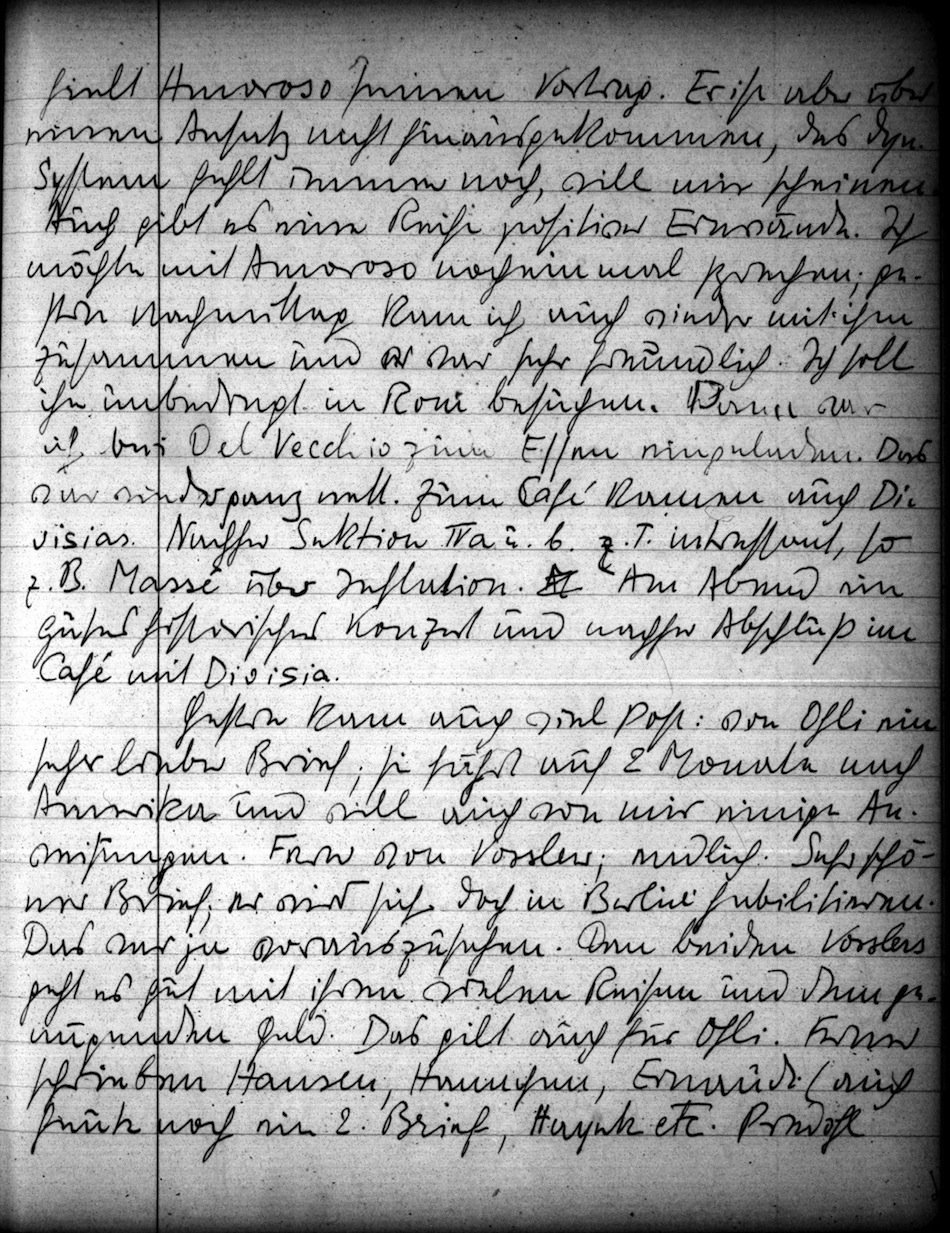 hielt Amoroso seinen Vortrag. Er ist aber über
einen Ansatz nicht hinausgekommen, das dyn.
System fehlt immer noch, will mir scheinen.
Auch gibt es eine Reihe positiver Einwände. Ich
möchte mit Amoroso noch einmal sprechen; ge-
stern Nachmittag kam ich auch wieder mit ihm
zusammen und er war sehr freundlich. Ich soll
ihn unbedingt in Rom besuchen. Dann war
ich bei Del Vecchio zum Essen eingeladen. Das
war wieder ganz nett. Zum Café kamen auch Di-
visias. Nachher Sektion IIa u. b. z. T. interessant, so
z. B. Massé über Inflation. Am Abend ein
gutes historisches Konzert und nachher Abschluß im
Café mit Divisia.
Gestern kam auch viel Post: von Ohli ein
sehr lieber Brief; sie fährt auf 2 Monate nach
Amerika und will auch von mir einige An-
weisungen. Ferner von Vossler; endlich. Sehr schö-
ner Brief; er wird sich doch in Berlin habilitieren.
Das war ja vorauszusehen. Den beiden Vosslers
geht es gut mit ihren vielen Reisen und dem ge-
nügenden Geld. Das gilt auch für Ohli. Ferner
schrieben Hansen, Hannchen, (auch
heute noch ein 2. Brief, Hayek etc. Predöhl